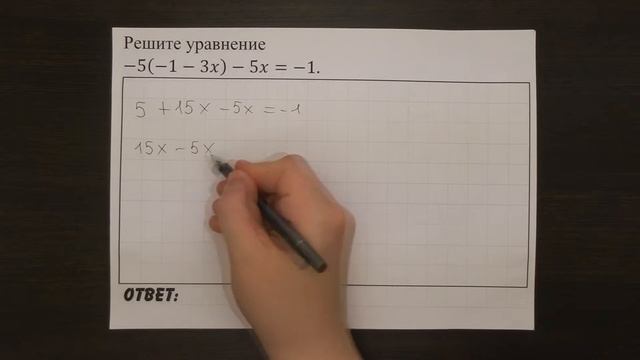 Решите уравнение
−5(−1 − 3x) − 5x = −1.
5 + 15x − 5x = −1
15x − 5x
ОТВЕТ: